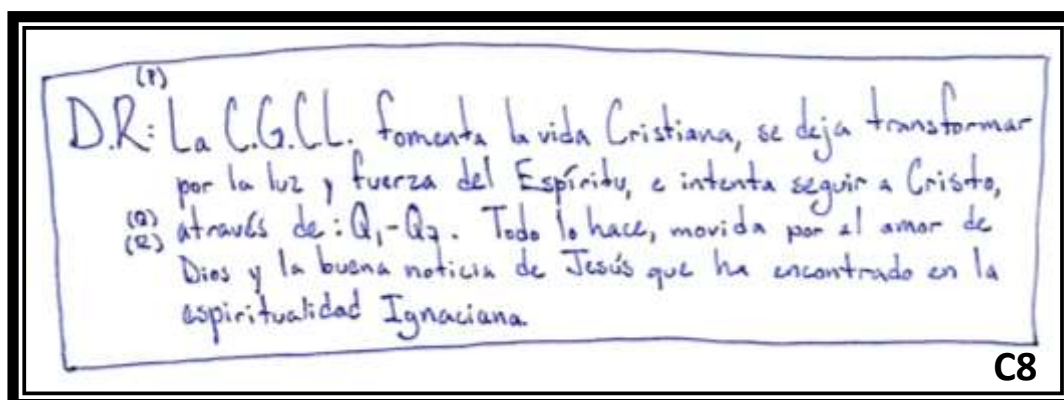 (P)
D.R: La C.G.C.L. fomenta la vida Cristiana, se deja transformar
por la luz y fuerza del Espíritu, e intenta seguir a Cristo,
(Q) através de: Q₁-Q₇. Todo lo hace, movida por el amor de
(R) Dios y la buena noticia de Jesús que ha encontrado en la
espiritualidad Ignaciana.
C8